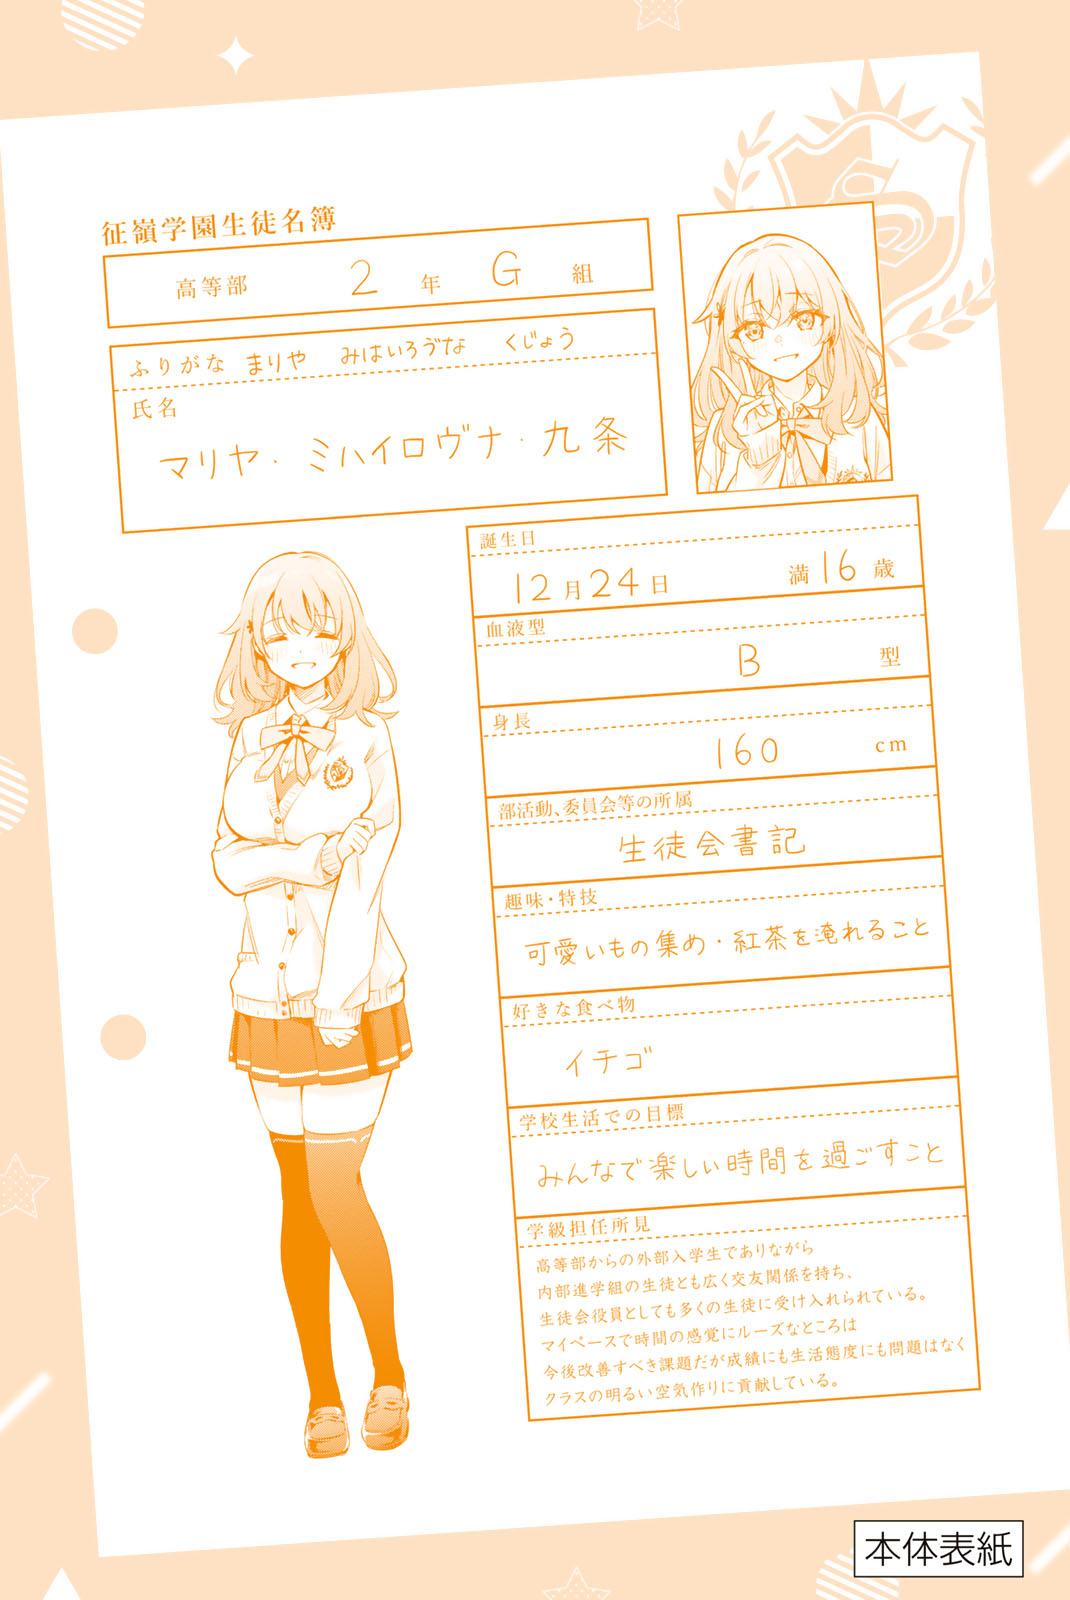 征嶺学園生徒名簿
高等部 2 年 G 組
ふりがな まりや みはいろゔな くじょう
氏名
マリヤ・ミハイロヴナ・九条
誕生日
12月24日 満16歳
血液型
B 型
身長
160 cm
部活動、委員会等の所属
生徒会書記
趣味・特技
可愛いもの集め・紅茶を淹れること
好きな食べ物
イチゴ
学校生活での目標
みんなで楽しい時間を過ごすこと
学級担任所見
高等部からの外部入学生でありながら
内部進学組の生徒とも広く交友関係を持ち、
生徒会役員としても多くの生徒に受け入れられている。
マイペースで時間の感覚にルーズなところは
今後改善すべき課題だが成績にも生活態度にも問題はなく
クラスの明るい空気作りに貢献している。
本体表紙